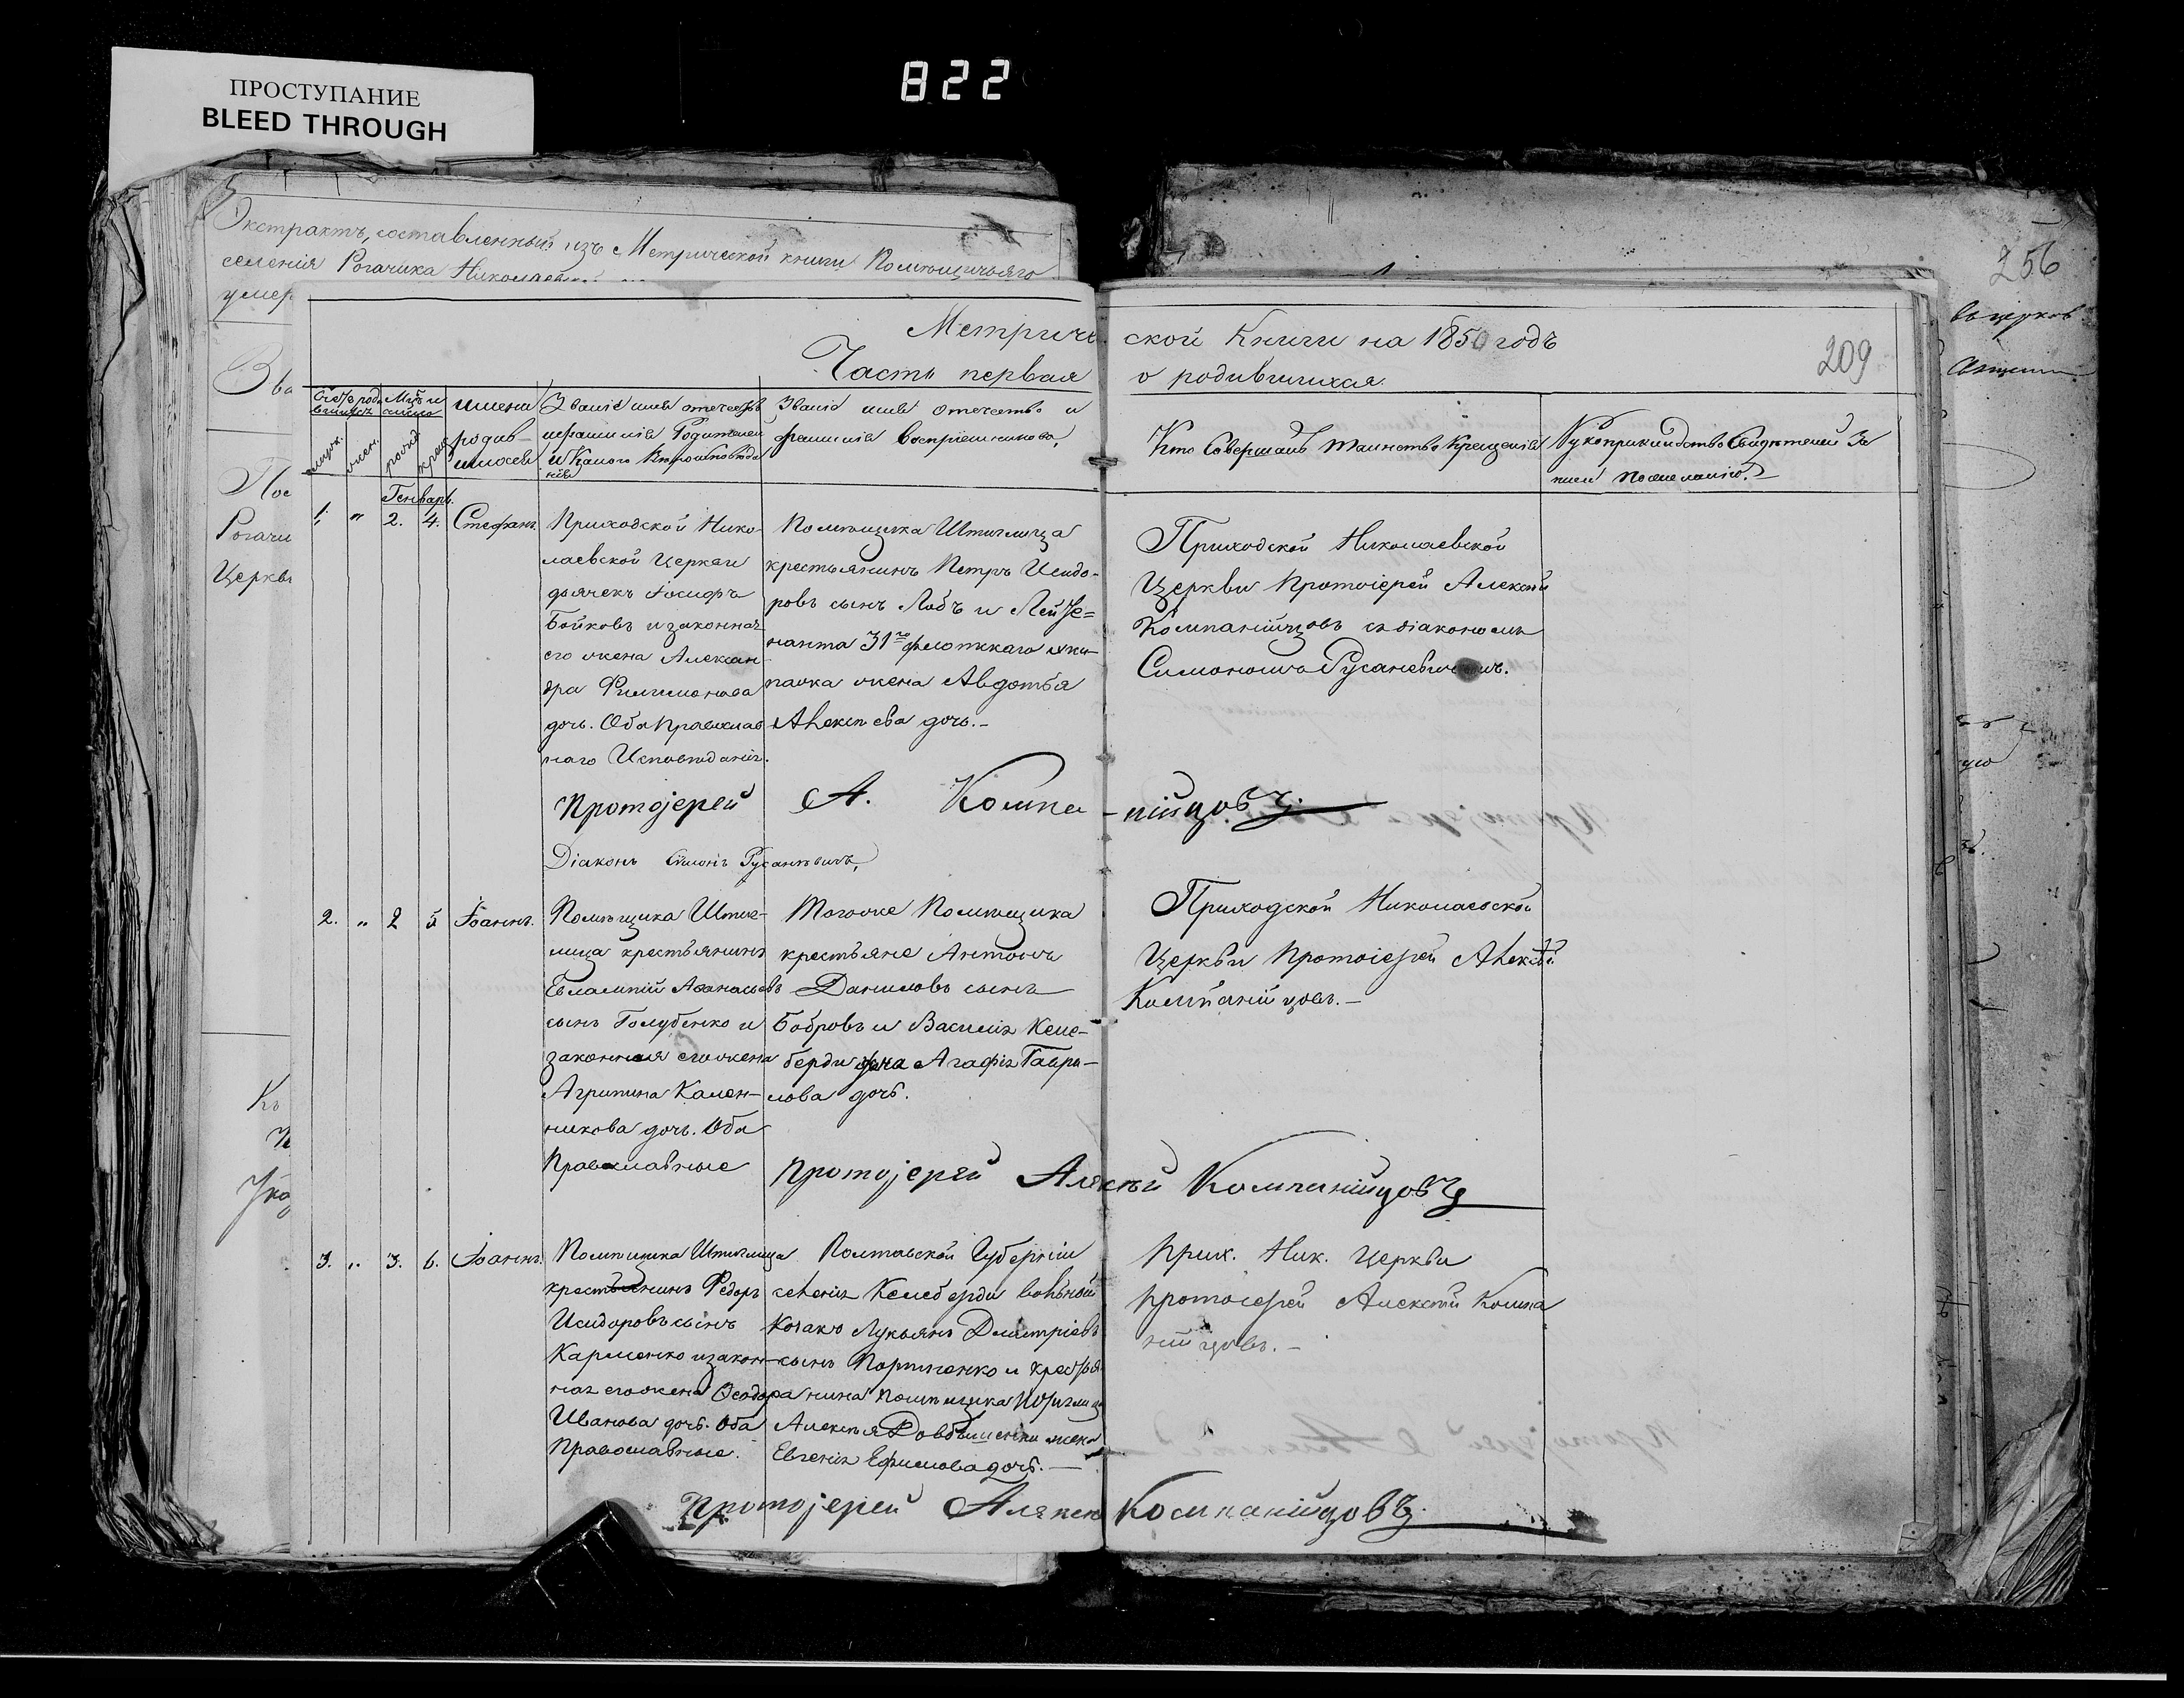 822
ПРОСТУПАНИЕ
BLEED THROUGH
Экстрактъ, составленный изъ Метрической книги Помѣщичьяго
селенія Рогачика
умер
256
Зва
Пос
Рогачи
Церквы
Метриче ской Книги на 1850 годъ
Часть первая о родившихся.
209
имена
родив-
шихся
Званіе имя отечество
и фамилія Родителей
и Какого Вѣроисповѣда
нія
Званіе имя отечество и
фамилія воспріемниковъ,
Кто Совершалъ таинство Крещенія
Рукоприкладство Свидѣтелей За
писи по желанію.
Генварь.
1. " 2. 4. Стефанъ.
Приходской Нико-
лаевской Церкви
дьячекъ Іосифъ
Бойковъ и законная
его жена Алексан
дра Филимонова
дочь. Оба православ
наго Исповѣданія.
Помѣщика Штиглица
крестьянинъ Петръ Исидо-
ровъ сынъ Лобъ и Лейте=
нанта 31го флотскаго эки-
пажа жена Авдотья
Алексѣева дочь.-
Приходской Николаевской
Церкви Протоіерей Алексѣй
Компанійцовъ съ діакономъ
Симономъ
Протоjерей А. Компа-нійцовъ.
Діаконъ Симонъ Русаневичъ,
2. " 2 5 Іоаннъ.
Помѣщика Штиг-
лица крестьянинъ
Евлампій Аѳанасьевъ
сынъ Голубенко и
законная его жена
Агрипина Кален-
никова дочь. Оба
Православные
Тогоже Помѣщика
крестьяне Антонъ
Даниловъ сынъ
Бобровъ и Василія Келе-
берди жена Агафія Гаври-
лова дочь.
Приходской Николаевской
Церкви Протоіерей Алексѣй
Компанійцовъ.-
Протоjерей Алексѣй Компанійцовъ
3. " 3. 6. Іоаннъ.
Помѣщика Штиглица
крестьянинъ Федоръ
Исидоровъ сынъ
Карпенко и закон-
ная его жена Ѳеодора
Иванова дочь. Оба
Православные.
Полтавской Губерніи
селенія Келеберди вольный
Козакъ Лукьянъ Дмитріевъ
сынъ и крестья
нина помѣщика Штиглица
Алексѣя жена
Евгенія Ефимова дочь.-
Прих. Ник. Церкви
Протоіерей Алексѣй Компа
нійцовъ.-
Протоjерей Алексѣ Компанійцовъ.